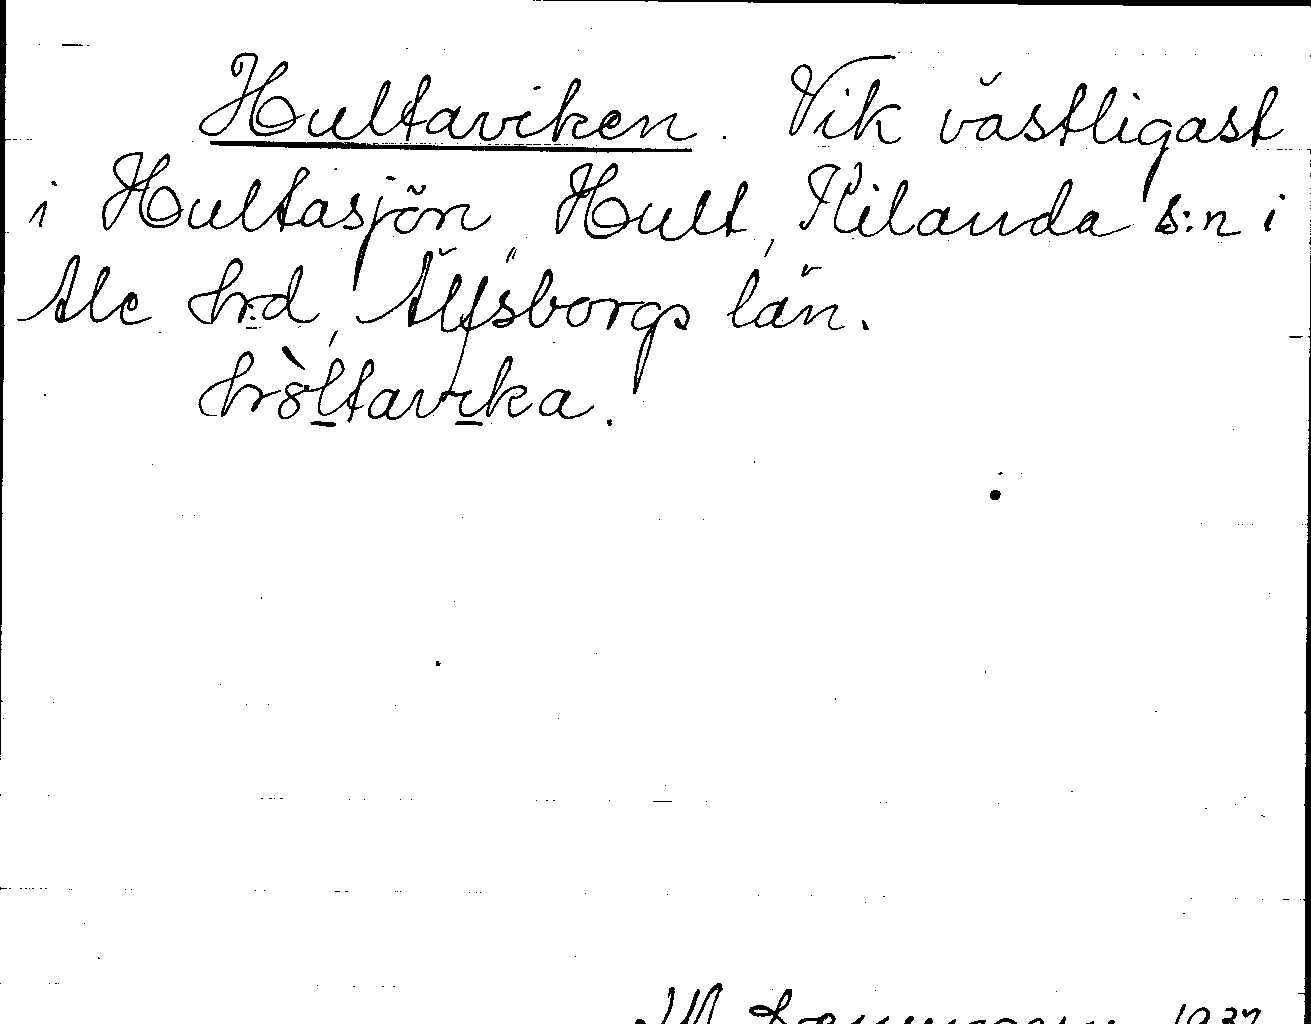 Hultaviken. Vik västligast
i Hultasjön, Hult, Kilanda s:n i
Ale hrd, Älfsborgs län.
hòltavika.
1937